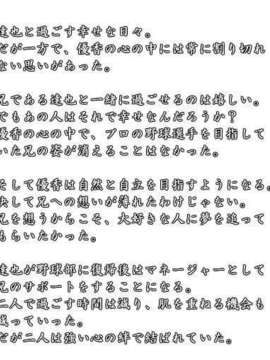 達也と過ごす幸せな日々。
だが一方で、優香の心の中には常に割り切れ
ない思いがあった。
兄である達也と一緒に過ごせるのは嬉しい。
でもあの人はそれで幸せなんだろうか?
優香の心の中で、プロの野球選手を目指して
いた兄の姿が消えることはなかった。
そして優香は自然と自立を目指すようになる。
決して兄への想いが薄れたわけじゃない。
兄を想うからこそ、大好きな人に夢を追って
もらいたかった。
達也が野球部に復帰後はマネージャーとして
兄のサポートをすることになる。
二人で過ごす時間は減り、肌を重ねる機会も
減っていった。
だが二人は強い心の絆で結ばれていた。